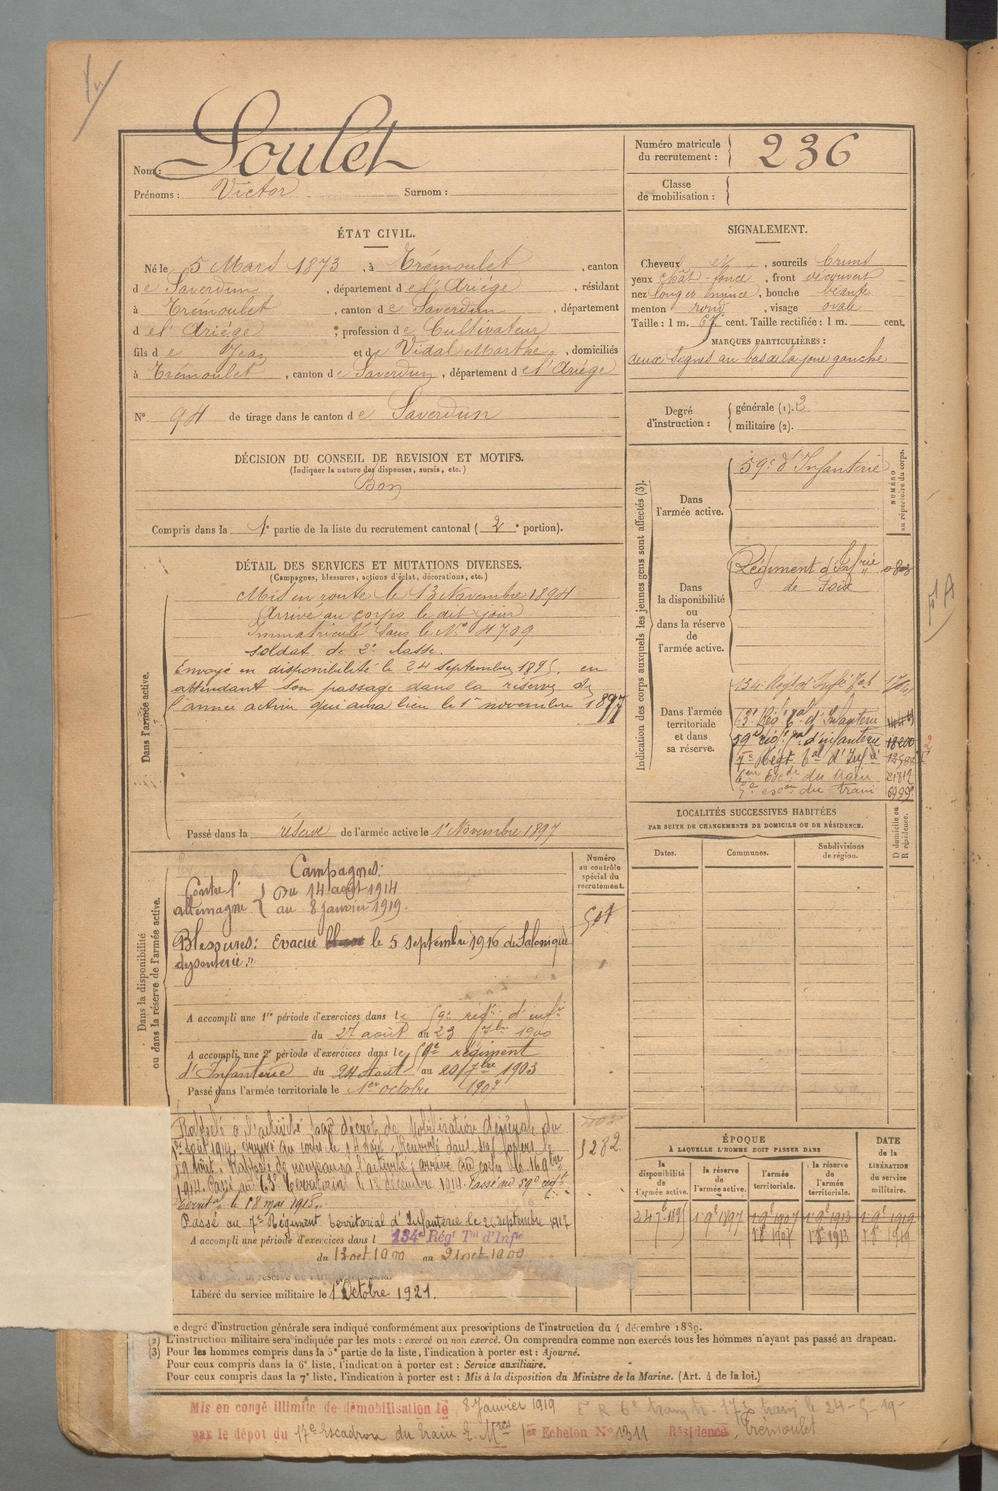 Nom: Soulet
Prénoms: Victor Surnom:
Numéro matricule du recrutement: 236
Classe de mobilisation:
ÉTAT CIVIL.
Né le 5 Mars 1873, à Trémoulet, canton
de Saverdun, département de l'Ariège, résidant
à Trémoulet, canton de Saverdun, département
de l'Ariège, profession de Cultivateur
fils de Jean et de Vidal Marthe, domiciliés
à Trémoulet, canton de Saverdun, département de l'Ariège
N° 94 de tirage dans le canton de Saverdun
SIGNALEMENT.
Cheveux et, sourcils bruns
yeux chât foncé, front découvert
nez long et mince, bouche
menton rond, visage ovale
Taille: 1 m. 67 cent. Taille rectifiée: 1 m. cent.
MARQUES PARTICULIÈRES:
deux signes au bas de la joue gauche
Degré d'instruction: générale (1). 2
militaire (2).
DÉCISION DU CONSEIL DE REVISION ET MOTIFS.
(Indiquer la nature des dispenses, sursis, etc.)
Bon
Compris dans la 1e partie de la liste du recrutement cantonal (2e portion).
DÉTAIL DES SERVICES ET MUTATIONS DIVERSES.
(Campagnes, blessures, actions d'éclat, décorations, etc.)
Dans l'armée active.
Mis en route le 13 Novembre 1894
Arrivé au corps le dit jour
Immatriculé sous le N° 4709
soldat de 2e classe.
Envoyé en disponibilité le 24 septembre 1895, en
attendant son passage dans la réserve de
l'armée active qui aura lieu le 1er novembre 1897
Passé dans la réserve de l'armée active le 1er Novembre 1897
Indication des corps auxquels les jeunes gens sont affectés (3).
NUMÉRO au répertoire du corps.
Dans l'armée active. 59e d'Infanterie
Dans la disponibilité ou dans la réserve de l'armée active.
Régiment d'Infrie
de Foix
Dans l'armée territoriale et dans sa réserve.
134e Regt
59e régt d'infanterie 18200
7e Régt d'Inf
6eme du train 21812
du train
LOCALITÉS SUCCESSIVES HABITÉES
PAR SUITE DE CHANGEMENTS DE DOMICILE OU DE RÉSIDENCE.
Dates. Communes. Subdivisions de région. D domicile ou R résidence.
Dans la disponibilité ou dans la réserve de l'armée active.
Numéro au contrôle spécial du recrutement.
Campagnes:
Contre l'allemagne { Du 14 août 1914
au 8 janvier 1919.
Blessures: Evacué le 5 septembre 1916 de Salonique
dysenterie."
A accompli une 1re période d'exercices dans le 59e régt d'infie
du 27 août au 23 7bre 1900
A accompli une 2e période d'exercices dans le 59e régiment
d'Infanterie du 24 Août au 20 7bre 1903
Passé dans l'armée territoriale le 1er octobre 1907
Rappelé à l'activité décret de Mobilisation Générale du
1er Août 1914, arrivé au corps le 14 dit. Renvoyé dans ses foyers le
1914. Passé au 63e Territorial le 13 décembre 1914. Passé au 59e régt
territal le 18 mai 1915.
Passé au 7e Régiment territorial d'Infanterie le 26 septembre 1917
A accompli une période d'exercices dans l 134e Régt Tal d'Infie
du 13 oct 1909 au 21 oct 1909
Libéré du service militaire le 1er Octobre 1921.
5282
ÉPOQUE
À LAQUELLE L'HOMME DOIT PASSER DANS
la disponibilité de l'armée active. la réserve de l'armée active. l'armée territoriale. la réserve de l'armée territoriale.
DATE de la LIBÉRATION du service militaire.
24 7bre 1895 1 9bre 1897 1 9bre 1907 1 9bre 1913 1 9bre 1919
1 8bre 1907 1 8bre 1913 1 8bre 1919
Le degré d'instruction générale sera indiqué conformément aux prescriptions de l'instruction du 4 décembre 1889.
(2) L'instruction militaire sera indiquée par les mots: exercé ou non exercé. On comprendra comme non exercés tous les hommes n'ayant pas passé au drapeau.
(3) Pour les hommes compris dans la 5e partie de la liste, l'indication à porter est: Ajourné.
Pour ceux compris dans la 6e liste, l'indication à porter est: Service auxiliaire.
Pour ceux compris dans la 7e liste, l'indication à porter est: Mis à la disposition du Ministre de la Marine. (Art. 4 de la loi.)
Mis en congé illimité de démobilisation le 8 Janvier 1919
par le dépôt du 17e Escadron du train 1er Echelon N° 1311 Résidence, Trémoulet